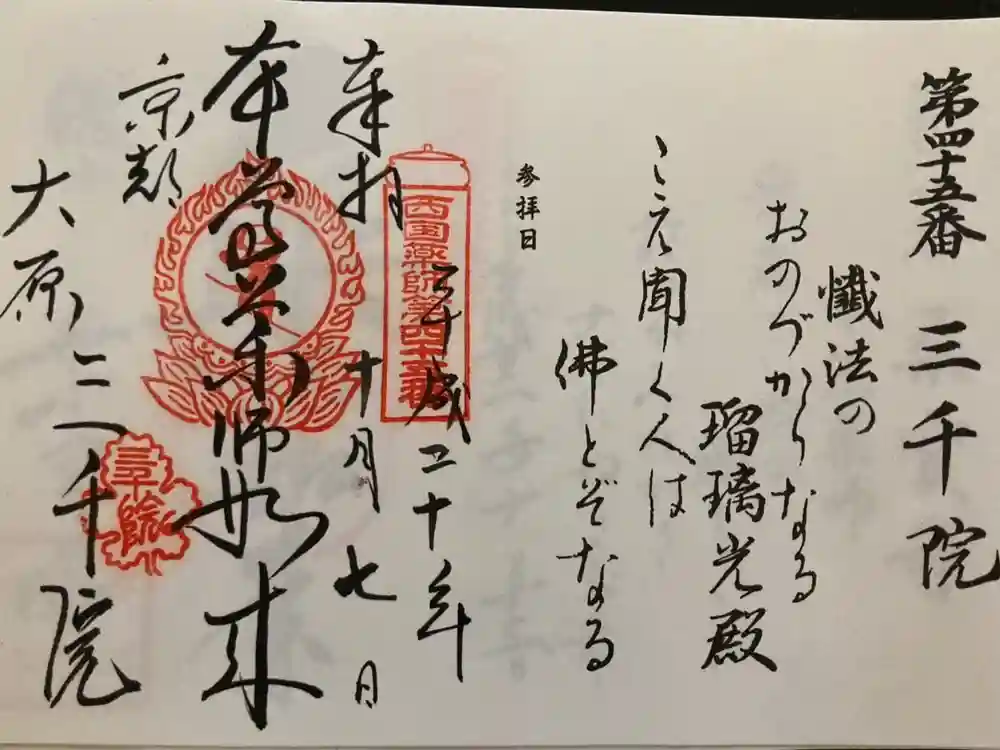 第四十五番 三千院
懺法の
おのづからなる
瑠璃光殿
こえ聞く人は
佛とぞなる
参拝日
西国薬師第四十五番
平成二十年
奉拝
十月七日
本尊薬師如来
京都
大原
三千院
三千院